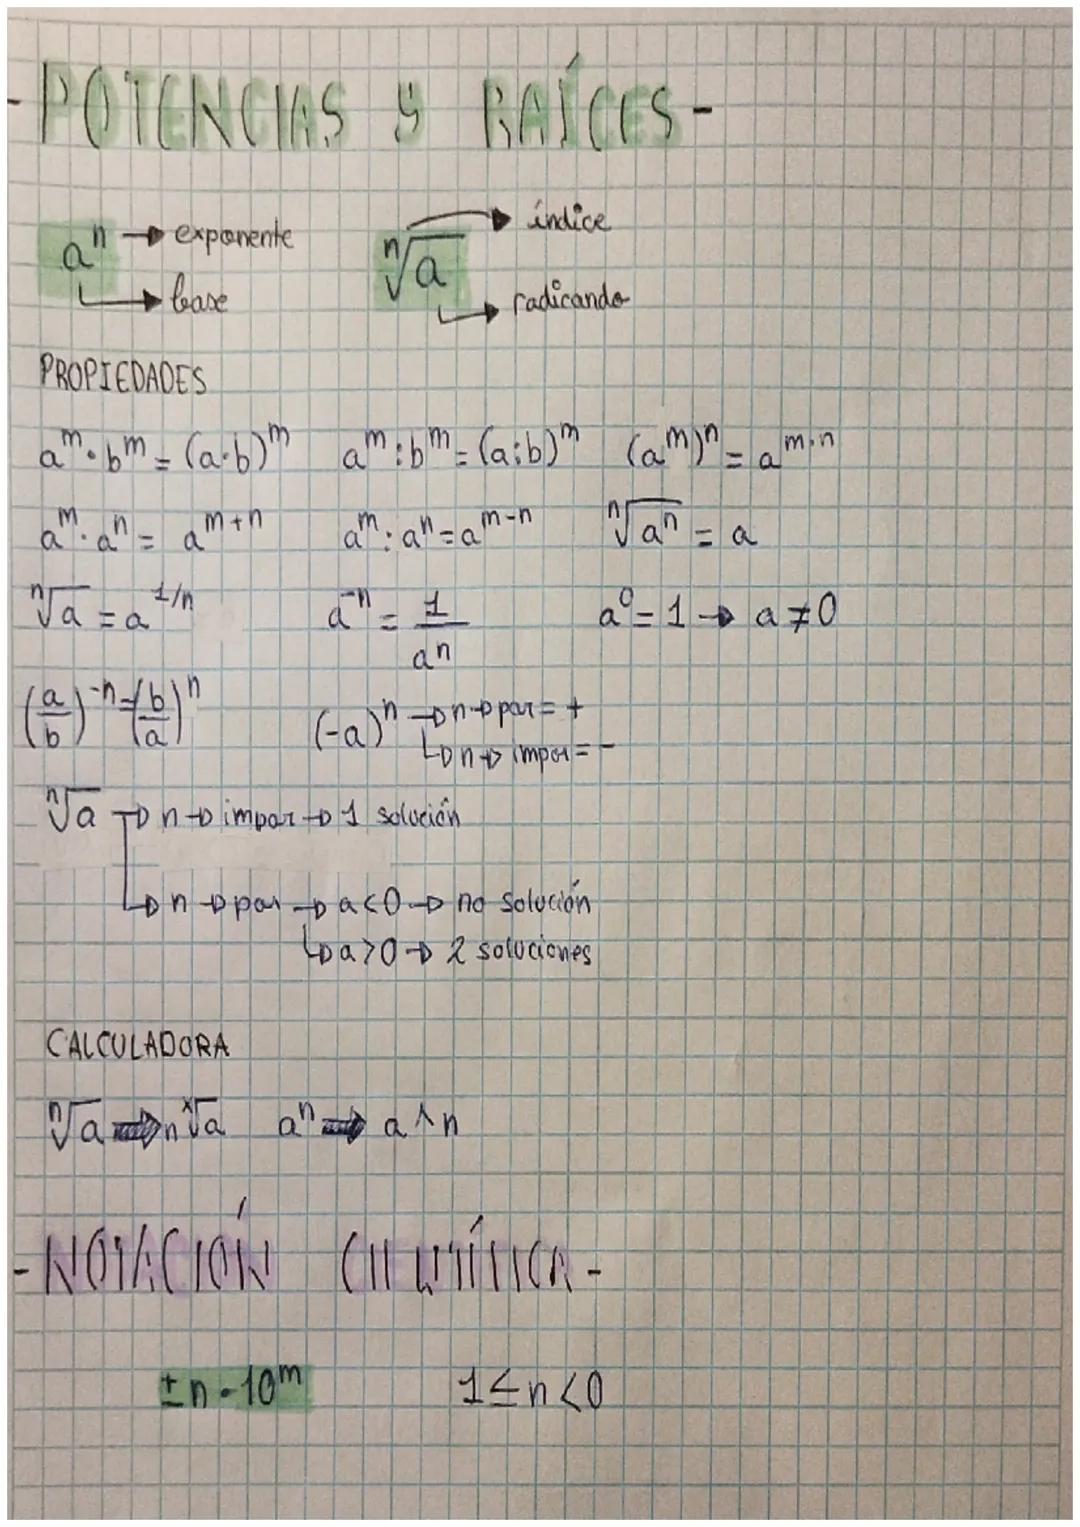 -POTENCIAS y RAÍCES-
aⁿ → exponente
→ base
ⁿ√a → índice
→ radicando
PROPIEDADES
aᵐ·bᵐ = (a·b)ᵐ aᵐ:bᵐ = (a:b)ᵐ (aᵐ)ⁿ = aᵐ·ⁿ
aᵐ·aⁿ = aᵐ⁺ⁿ aᵐ:aⁿ = aᵐ⁻ⁿ ⁿ√aⁿ = a
ⁿ√a = a^1/n a⁻ⁿ = 1/aⁿ a⁰ = 1 → a ≠ 0
(a/b)⁻ⁿ = (b/a)ⁿ (-a)ⁿ → n → par = +
↳ n → impar = -
ⁿ√a → n → impar → 1 solución
↳ n → par → a<0 → no solución
↳ a>0 → 2 soluciones
CALCULADORA
ⁿ√a ⇒ n ˣ√a aⁿ ⇒ a ∧ n
-NOTACIÓN CIENTÍFICA-
±n·10ᵐ 1≤n<0